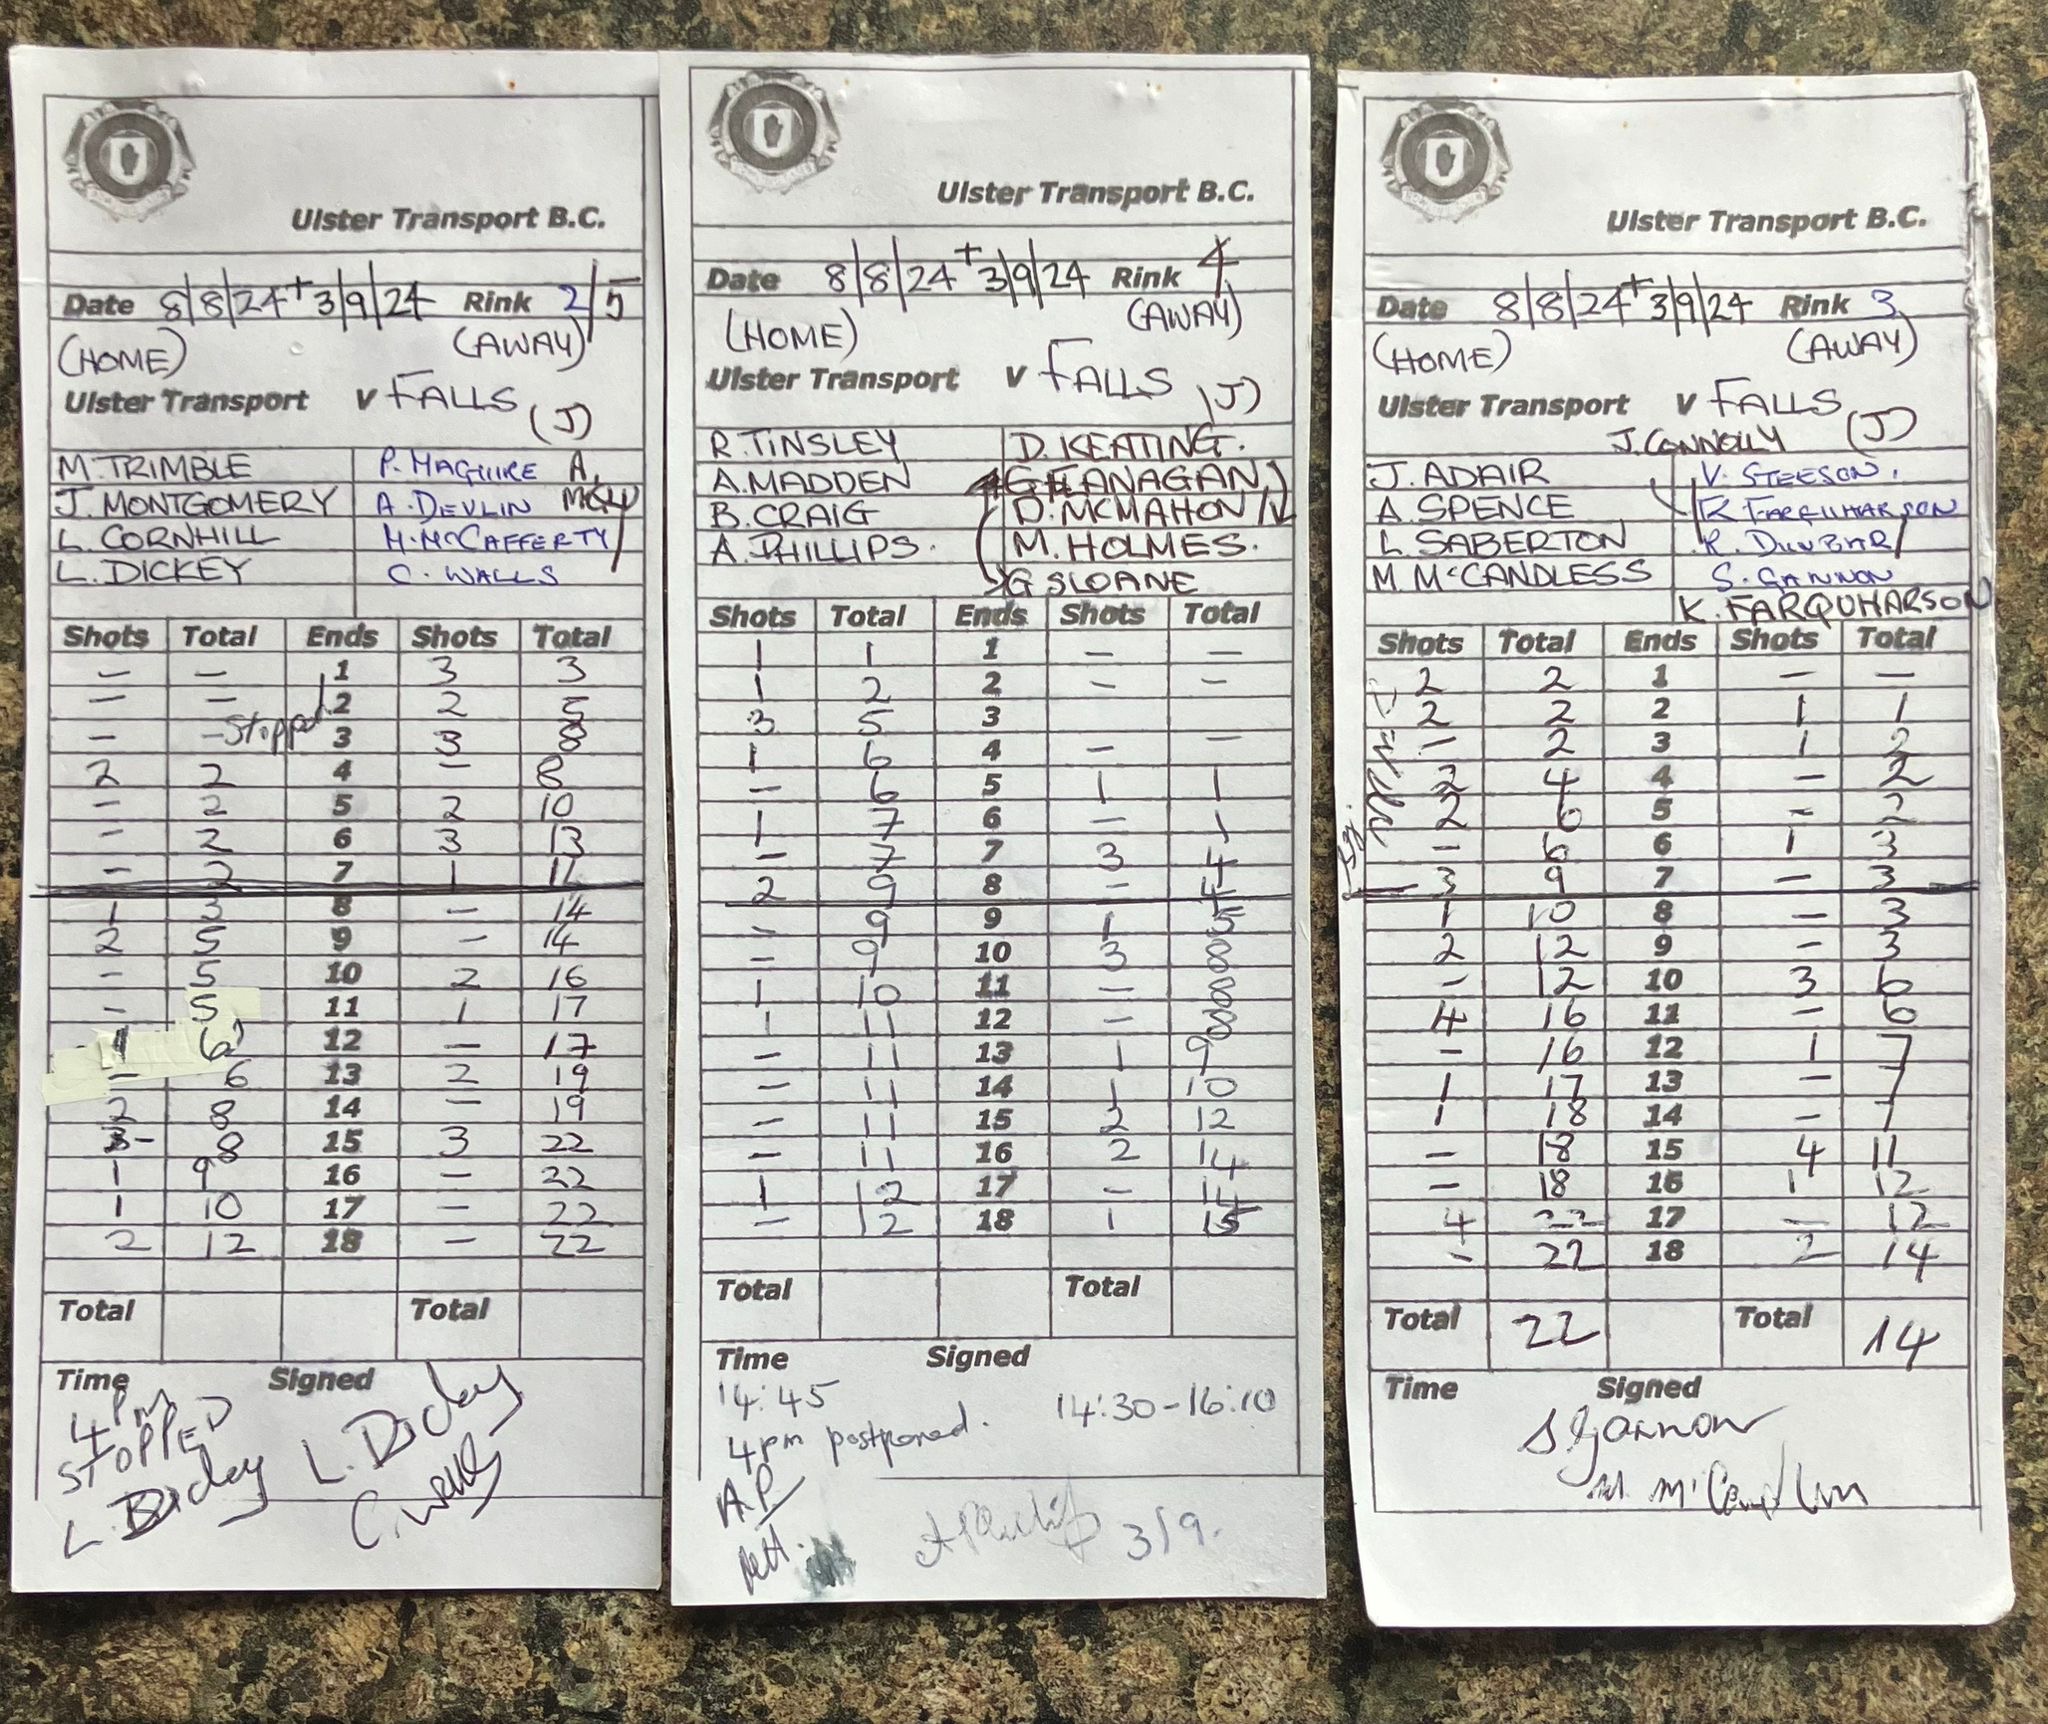 Ulster Transport B.C.
Date 8/8/24 + 3/9/24 Rink 2/5
(HOME) (AWAY)
Ulster Transport v FALLS
(J)
M. TRIMBLE P. MAGUIRE A.
J. MONTGOMERY A. DEVLIN
L. CORNHILL M. McCAFFERTY
L. DICKEY C. WALLS
Shots Total Ends Shots Total
- - 1 3 3
- - 2 2 5
- - Stopped 3 3 8
2 2 4 - 8
- 2 5 2 10
- 2 6 3 13
- 2 7 1
1 3 8 - 14
2 5 9 - 14
- 5 10 2 16
- 5 11 1 17
1 6 12 - 17
- 6 13 2 19
2 8 14 - 19
- 8 15 3 22
1 9 16 - 22
1 10 17 - 22
2 12 18 - 22
Total Total
Time Signed
4PM
STOPPED
L. Dickey L. Dickey
C. Walls
Ulster Transport B.C.
Date 8/8/24 + 3/9/24 Rink 4
(HOME) (AWAY)
Ulster Transport v FALLS (J)
R. TINSLEY D. KEATING.
A. MADDEN G FLANAGAN
B. CRAIG D. MCMAHON
A. PHILLIPS. M. HOLMES.
G SLOANE
Shots Total Ends Shots Total
1 1 1 - -
1 2 2 - -
3 5 3
1 6 4 - -
- 6 5 1 1
1 7 6 - 1
- 7 7 3 4
2 9 8 - 4
- 9 9 1 5
- 9 10 3 8
1 10 11 - 8
1 11 12 - 8
- 11 13 1 9
- 11 14 1 10
- 11 15 2 12
- 11 16 2 14
1 12 17 - 14
- 12 18 1 15
Total Total
Time Signed
14:45
14:30-16:10
4pm postponed.
A.P
3/9.
Ulster Transport B.C.
Date 8/8/24 + 3/9/24 Rink 3
(HOME) (AWAY)
Ulster Transport v FALLS (J)
J. CONNOLLY
J. ADAIR V. STEESON,
A. SPENCE R FARQUHARSON
L. SABERTON R. DUNBAR
M. McCANDLESS S. GANNON
K. FARQUHARSON
Shots Total Ends Shots Total
2 2 1 - -
2 2 2 1 1
- 2 3 1 2
2 4 4 - 2
2 6 5 - 2
- 6 6 1 3
3 9 7 - 3
1 10 8 - 3
2 12 9 - 3
- 12 10 3 6
4 16 11 - 6
- 16 12 1 7
1 17 13 - 7
1 18 14 - 7
- 18 15 4 11
- 18 16 1 12
4 22 17 - 12
- 22 18 2 14
Total 22 Total 14
Time Signed
S Gannon
M. McCandless